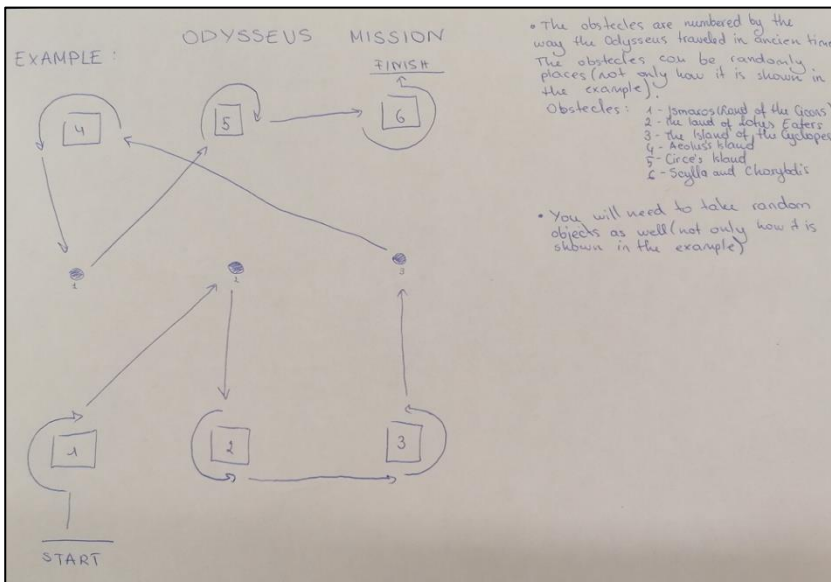 EXAMPLE:
ODYSSEUS MISSION
FINISH
4
5
6
1
2
3
1
2
3
START
• The obstecles are numbered by the
way the Odysseus traveled in ancien time
The obstecles can be randomly
places (not only how it is shown in
the example).
Obstecles: 1 - Ismaros (Land of the
2 - The land of Lotus Eaters
3 - The Island of the Cyclopes
4 - Aeolus's Island
5 - Circe's Island
6 - Scylla and Charybdis
• You will need to take random
objects as well (not only how it is
shown in the example)